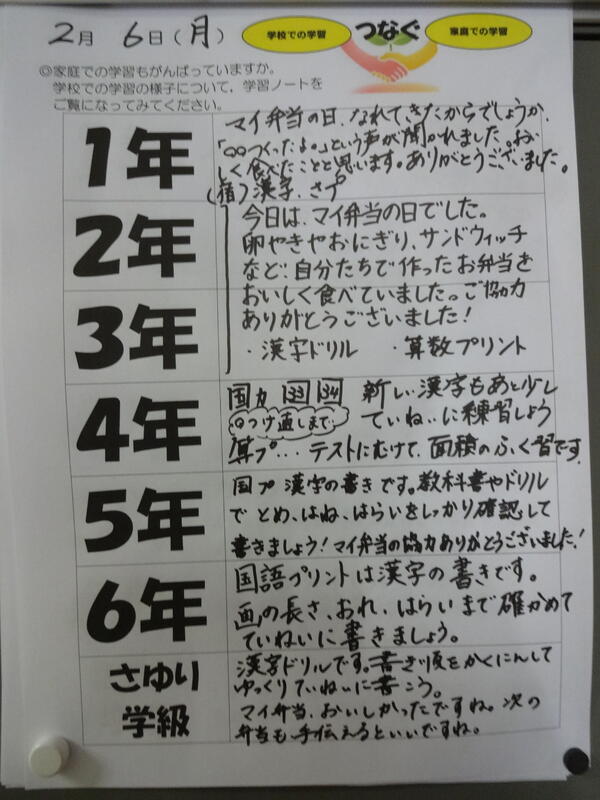 2月 6日(月)
学校での学習 つなぐ 家庭での学習
◎家庭での学習もがんばっていますか。
学校での学習の様子について、学習ノートを
ご覧になってみてください。
1年
マイ弁当の日、なれてきたからでしょうか、
「○○つくったよ。」という声が聞かれました。おい
しく食べたことと思います。ありがとうございました。
(宿)漢字、さプ
2年
3年
今日は、マイ弁当の日でした。
卵やきやおにぎり、サンドウィッチ
など、自分たちで作ったお弁当を
おいしく食べていました。ご協力
ありがとうございました!
・漢字ドリル ・算数プリント
4年
国力 133 134 新しい漢字もあと少し
○つけ直しまで ていねいに練習しよう
算プ… テストにむけて、面積のふく習です
5年
国プ 漢字の書きです。教科書やドリル
で とめ、はね、はらいをしっかり確認して
書きましょう!マイ弁当の協力ありがとうございました!
6年
国語プリントは漢字の書きです。
画の長さ、おれ、はらいまで確かめて
ていねいに書きましょう。
さゆり
学級
漢字ドリルです。書き順をかくにんして
ゆっくりていねいに書こう。
マイ弁当、おいしかったですね。次の
弁当も手伝えるといいですね。